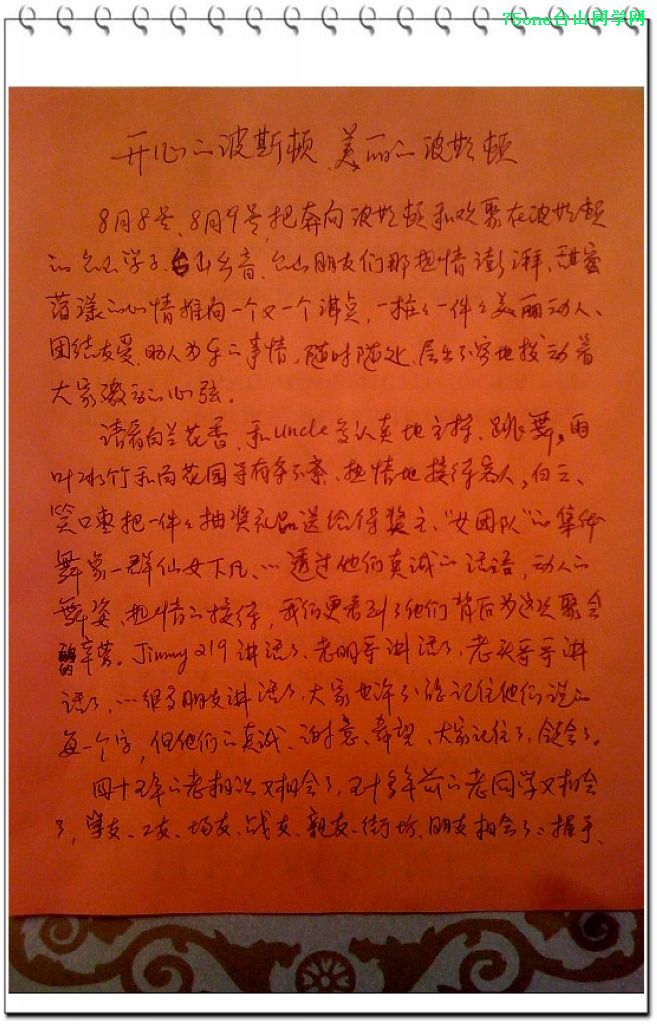 75one台山同学网
开心的波斯顿、美丽的波斯顿
8月8号、8月9号，把奔向波斯顿和欢聚在波斯顿
的台山学子、台山乡音、台山朋友们那热情澎湃、甜蜜
荡漾的心情推向一个又一个沸点，一桩桩一件件美丽动人、
团结友爱、助人为乐的事情，随时随处、层出不穷地拨动着
大家激动的心弦。
请看白兰花香、和uncle等认真地主持、跳舞。雨
叶冰竹和尚花园等有条不紊、热情地接待客人，白云、
笑口枣把一件件抽奖礼品送给得奖主、“女团队”的集体
舞象一群仙女下凡、…透过他们真诚的话语，动人的
舞姿、热情的接待，我们更看到了他们背后为这次聚会
的辛劳。Jimmy219讲话了、老明哥讲话了、老头哥哥讲
话了，…很多朋友讲话了，大家也许不能记住他们说的
每一个字，但他们的真诚、谢意、希望、大家记住了、领会了。
四十五年的老相识又相会了，五十多年前的老同学又相会
了，学友、工友、场友、战友、亲友、街坊、朋友相会了：握手、